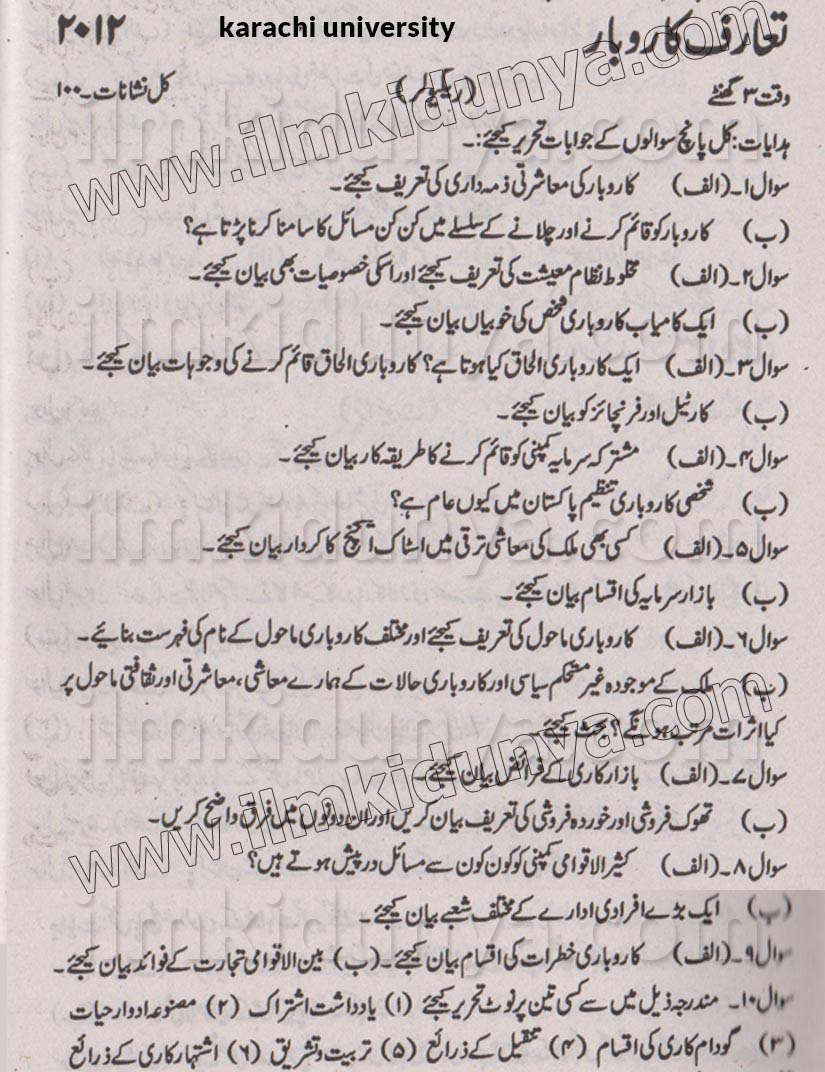 karachi university
۲۰۱۲
تعارف کاروبار
وقت ۳ گھنٹے (ریگولر) کل نشانات۔۱۰۰
ہدایات: کل پانچ سوالوں کے جوابات تحریر کیجئے:۔
سوال۱۔(الف) کاروبار کی معاشرتی ذمہ داری کی تعریف کیجئے۔
(ب) کاروبار کو قائم کرنے اور چلانے کے سلسلے میں کن کن مسائل کا سامنا کرنا پڑتا ہے؟
سوال۲۔(الف) مخلوط نظام معیشت کی تعریف کیجئے اور اسکی خصوصیات بھی بیان کیجئے۔
(ب) ایک کامیاب کاروباری شخص کی خوبیاں بیان کیجئے۔
سوال۳۔(الف) ایک کاروباری الحاق کیا ہوتا ہے؟ کاروباری الحاق قائم کرنے کی وجوہات بیان کیجئے۔
(ب) کارٹیل اور فرنچائز کو بیان کیجئے۔
سوال۴۔(الف) مشترکہ سرمایہ کمپنی کو قائم کرنے کا طریقہ کار بیان کیجئے۔
(ب) شخصی کاروباری تنظیم پاکستان میں کیوں عام ہے؟
سوال۵۔(الف) کسی بھی ملک کی معاشی ترقی میں اسٹاک ایکسچینج کا کردار بیان کیجئے۔
(ب) بازار سرمایہ کی اقسام بیان کیجئے۔
سوال۶۔(الف) کاروباری ماحول کی تعریف کیجئے اور مختلف کاروباری ماحول کے نام کی فہرست بنائیے۔
(ب) ملک کے موجودہ غیر مستحکم سیاسی اور کاروباری حالات کے ہمارے معاشی، معاشرتی اور ثقافتی ماحول پر
کیا اثرات مرتب ہونگے؟ بحث کیجئے۔
سوال۷۔(الف) بازار کاری کے فرائض بیان کیجئے۔
(ب) تھوک فروشی اور خوردہ فروشی کی تعریف بیان کریں اور ان دونوں میں فرق واضح کریں۔
سوال۸۔(الف) کثیر الاقوامی کمپنی کو کون کون سے مسائل در پیش ہوتے ہیں؟
(ب) ایک بڑے افرادی ادارے کے مختلف شعبے بیان کیجئے۔
سوال۹۔(الف) کاروباری خطرات کی اقسام بیان کیجئے۔(ب) بین الاقوامی تجارت کے فوائد بیان کیجئے۔
سوال۱۰۔ مندرجہ ذیل میں سے کسی تین پر نوٹ تحریر کیجئے (۱) یادداشت اشتراک (۲) مصنوعہ ادوار حیات
(۳) گودام کاری کی اقسام (۴) نقیل کے ذرائع (۵) تربیت و تشریق (۶) اشتہار کاری کے ذرائع
www.ilmkidunya.com
www.ilmkidunya.com
ilmkidunya.com
ilmkidunya.com
ilmkidunya.com
ilmkidunya.com
ilmkidunya.com
ilmkidunya.com